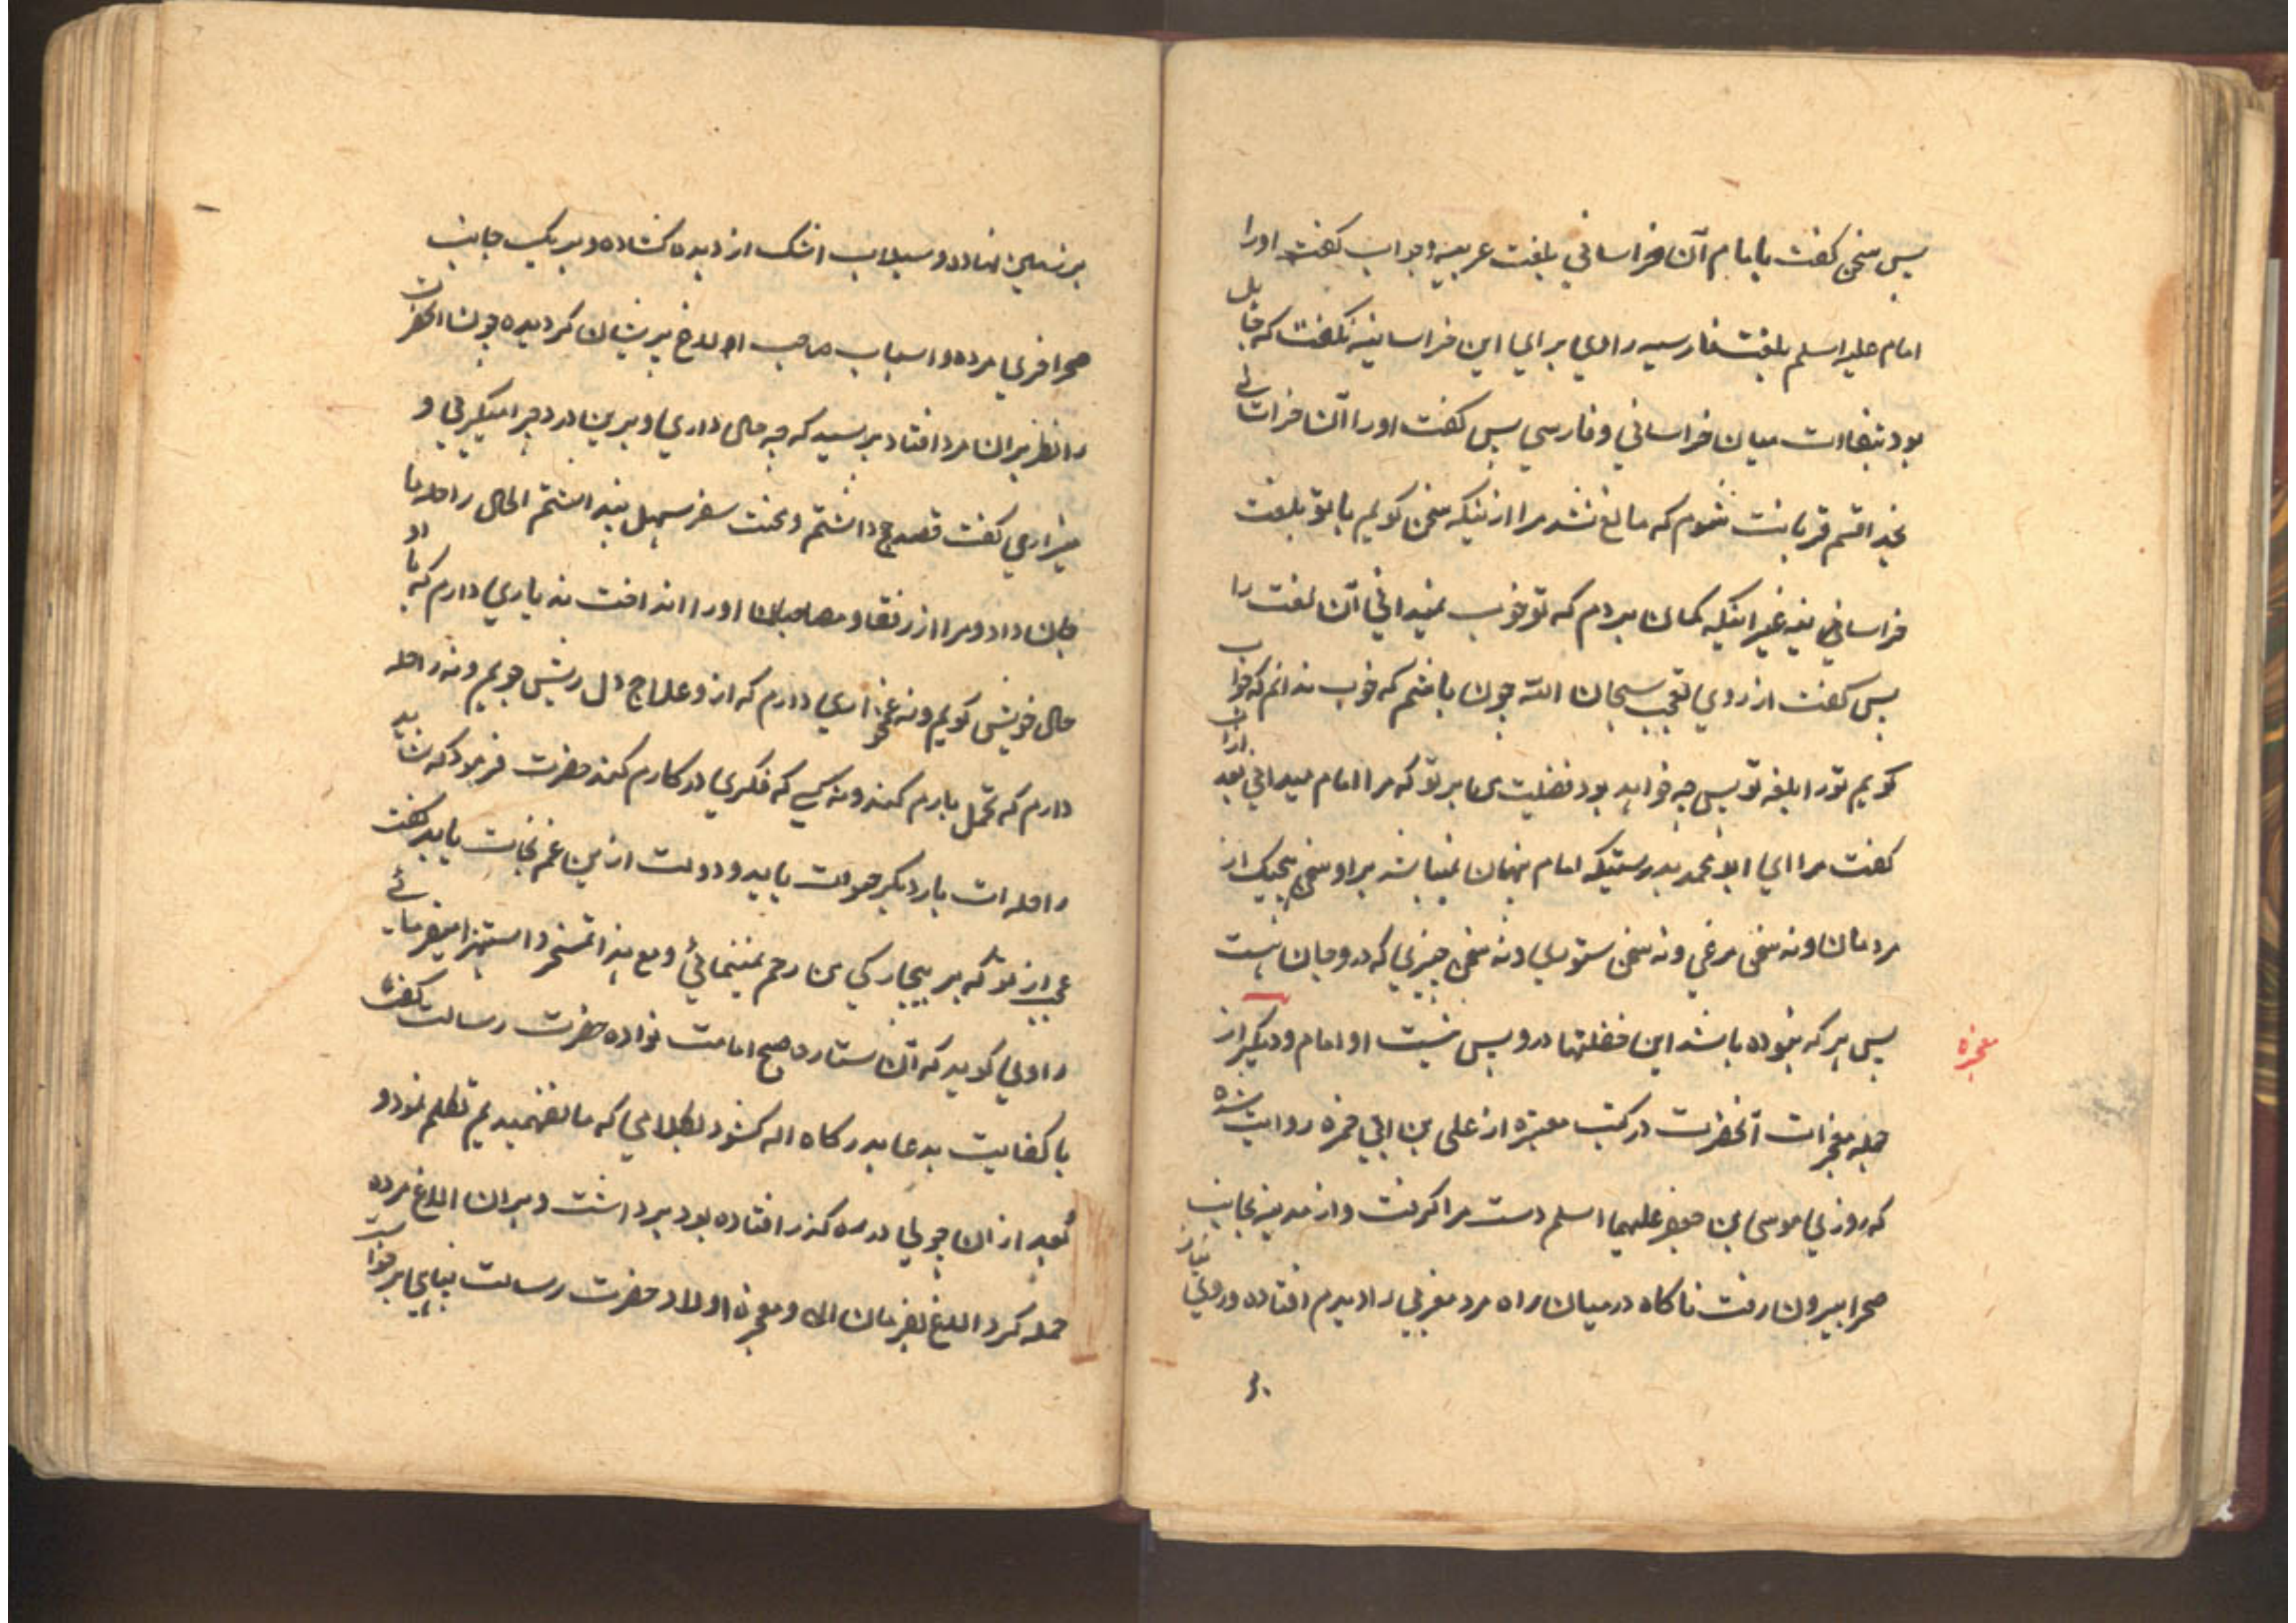 پس سخن کفت بامام آن خراسانی بلغت عربیه و جواب کفت اورا
امام علیه اسلم بلغت فارسیه راوی برای این خراسانیه نکفت که قابل
بود تفاوت میان خراسانی و فارسی پس کفت اورا آن خراسانی
بخدا قسم قربانت شوم که مانع نشد مرا ازینکه سخن کویم باتو بلغت
خراسانی یغیر غیر اینکه کمان بردم که تو خوب نمیدانی آن لغت را
پس کفت از روی تعجب سبحان الله چون باشم که خوب ندانم که جواب
کویم تورا بلغه تو پس چه خواهد بود فضلیت ما بر تو که مرا امام میدانی بعد ازان
کفت مرا ای ابو محمد بدرستیکه امام پنهان نمیباشد براو سخن هیچیک از
مردمان و نه سخن مرغی و نه سخن ستوری و نه سخن چیزی که درو جان هست
پس هر که نبوده باشد این فضلتها درو پس نیست او امام و دیکر از
معجزه
جمله معجزات آنحضرت در کتب معتبره از علی بن ابی حمزه روایت شده
که روزی موسی بن جعفر علیهما اسلم دست مرا کرفت و از مدینه بجانب
صحرا بیرون رفت ناکاه در میان راه مرد مغربی را دیدم افتاده و روی نیاز
بر
بر زمین نهاده و سیلاب اشک از دیده کشاده و بر یک جانب
صحرا خری مرده و اسباب صاحب اولاغ پریشان کردیده چون آنحضرت
را نظر بران مرد افتاد پرسید که چه حال داری و برین درد چرا میکرئی و
میزاری کفت قصد حج داشتم و محنت سفر سهل پنداشتم الحال راحله ما
جان داد و مرا از رفقا و مصاحبان اورا انداخت نه یاری دارم که با او
حال خویش کویم و نه غمخواری دارم که ازو علاج دل ریش جویم و نه راحله
دارم که تحمل بارم کند و نه کسی که فکری در کارم کند حضرت فرمود که شاید
راحله ات بار دیکر حیوة یابد و دولت ازین غم نجات یابد کفت
عجب از تو که بر بیچارکی من رحم نمینمائی و مع هذا تمسخر و استهزا میفرمائی
راوی کوید که آن ستاره صبح امامت نواده حضرت رسالت کفره
با کفایت بدعا بدرکاه اله کشود بکلامی که ما نفهمیدیم تکلم نمود و
بعد ازان چوبی در ره کذر افتاده بود برداشت و بران الاغ مرده
حمله کرد الاغ بفرمان اله و معجزه اولاد حضرت رسالت پناهی برخواست